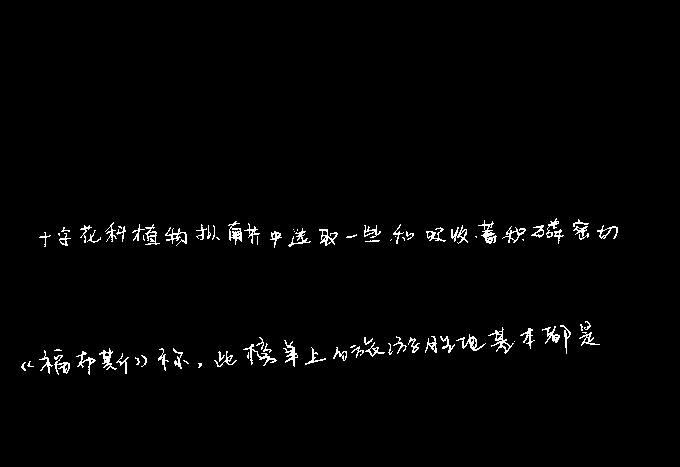 十字花科植物拟南芥中选取一些和吸收蓄积磷密切
《福布斯》称，此榜单上的旅游胜地基本都是